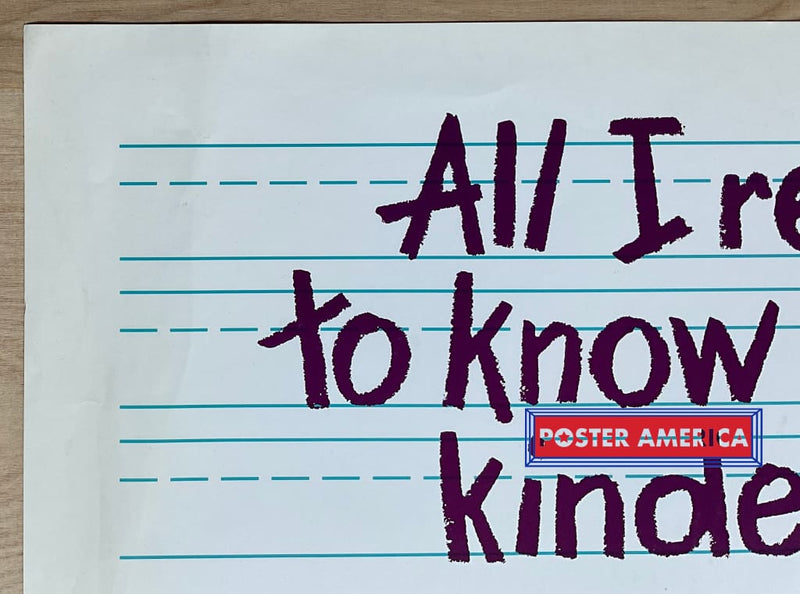 All I re
to know
POSTER AMERICA
kinde